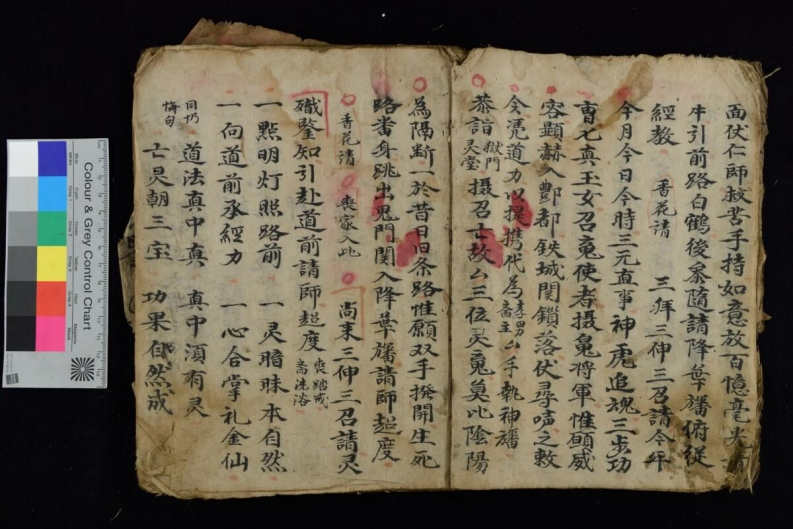 面伏仁師救苦手持如意放百憶毫光
引前路白鶴後隨請降旛俯従
經教 香花請 三拜三伸三召請今年
今月今日今時三元直事神虎追魂三步功
曹七真玉女召䰟使者摄䰟将軍惟願威
容顕赫入酆都鉄城関鎖落伏尋声之敕
今凴道力以提携代為孝男齋主厶手執神旛
恭詣獄門灵堂摄召亡故厶三位灵䰟莫比陰陽
為隔断一於昔日旧条路惟愿双手撥開生死
路番身跳出鬼門関入降旛請師超度
香花請 丧家入此 尚来三伸三召請灵
鑒知引赴道前請師超度
一點明灯照路前 一灵暗昧本自然
一向道前承經力 一心合掌礼金仙
道法真中真 真中湏有灵
同仍悔句 亡灵朝三宝 功果自然成
Colour & Grey Control Chart
Blue
Cyan
Green
Yellow
Red
Magenta
White
Black